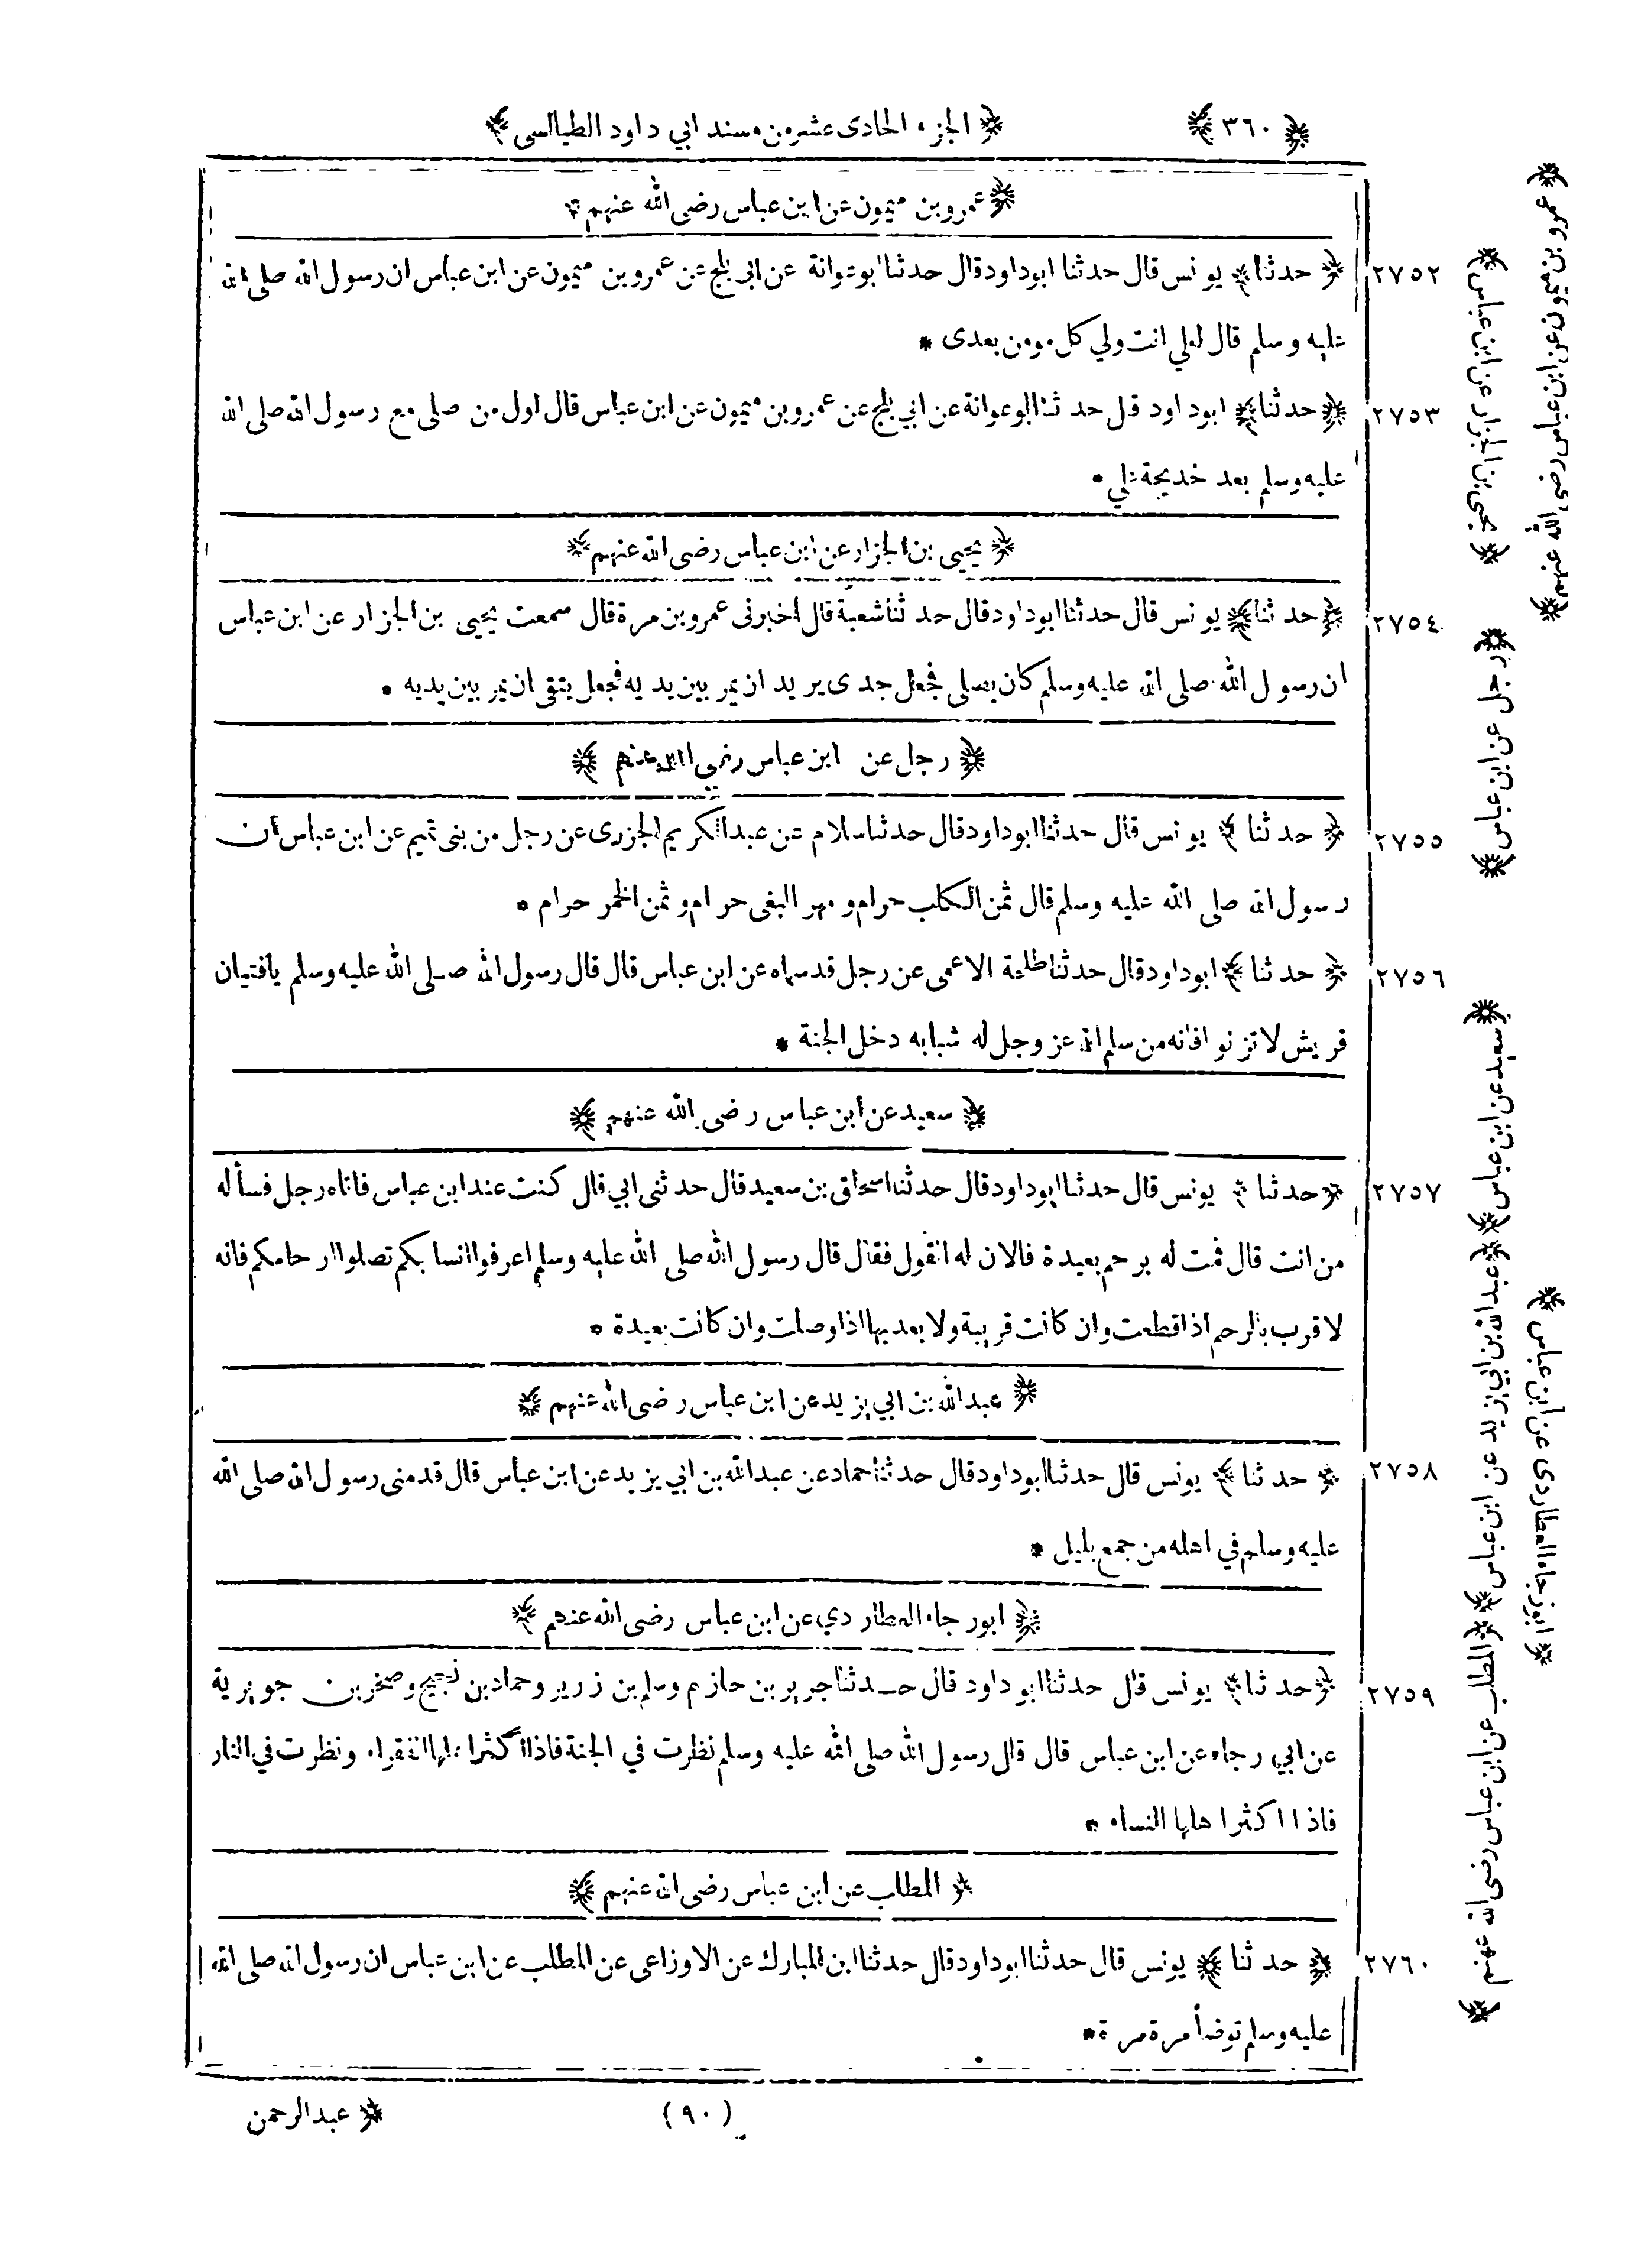 ﴿ ٣٦٠ ﴾ ﴿ الجزء الحادى عشر من مسند ابي داود الطيالسى ﴾
﴿ عمرو بن ميمون عن ابن عباس رضى الله عنهم ﴾
٢٧٥٢ ﴿ حدثنا ﴾ يونس قال حدثنا ابو داود قال حدثنا ابو عوانة عن ابي بلج عن عمرو بن ميمون عن ابن عباس ان رسول الله صلى الله
عليه وسلم قال لعلي انت ولي كل مومن بعدى *
٢٧٥٣ ﴿ حدثنا ﴾ ابو داود قال حدثنا ابو عوانة عن ابي بلج عن عمرو بن ميمون عن ابن عباس قال اول من صلى مع رسول الله صلى الله
عليه وسلم بعد خديجة علي *
﴿ يحيى بن الجزار عن ابن عباس رضى الله عنهم ﴾
٢٧٥٤ ﴿ حدثنا ﴾ يونس قال حدثنا ابو داود قال حدثنا شعبة قال اخبرنى عمرو بن مرة قال سمعت يحيى بن الجزار عن ابن عباس
ان رسول الله صلى الله عليه وسلم كان يصلى فجعل جدى يريد ان يمر بين يديه فجعل يتقى ان يمر بين يديه *
﴿ رجل عن ابن عباس رضي الله عنهم ﴾
٢٧٥٥ ﴿ حدثنا ﴾ يونس قال حدثنا ابو داود قال حدثنا سلام عن عبد الكريم الجزرى عن رجل من بنى تميم عن ابن عباس ان
رسول الله صلى الله عليه وسلم قال ثمن الكلب حرام و مهر البغى حرام و ثمن الخمر حرام *
٢٧٥٦ ﴿ حدثنا ﴾ ابو داود قال حدثنا طلحة الاعمى عن رجل قد سماه عن ابن عباس قال قال رسول الله صلى الله عليه وسلم يا فتيان
قريش لا تزنوا فانه من سلم الله عز وجل له شبابه دخل الجنة *
﴿ سعيد عن ابن عباس رضى الله عنهم ﴾
٢٧٥٧ ﴿ حدثنا ﴾ يونس قال حدثنا ابو داود قال حدثنا اسحاق بن سعيد قال حدثنى ابي قال كنت عند ابن عباس فاتاه رجل فسأله
من انت قال فمت له برحم بعيدة فالان له القول فقال قال رسول الله صلى الله عليه وسلم اعرفوا انسابكم تصلوا ارحامكم فانه
لا قرب بالرحم اذا قطعت وان كانت قريبة ولا بعد بها اذا وصلت وان كانت بعيدة *
﴿ عبد الله بن ابي يزيد عن ابن عباس رضى الله عنهم ﴾
٢٧٥٨ ﴿ حدثنا ﴾ يونس قال حدثنا ابو داود قال حدثنا حماد عن عبد الله بن ابي يزيد عن ابن عباس قال قدمنى رسول الله صلى الله
عليه وسلم في اهله من جمع بليل *
﴿ ابو رجاء العطاردي عن ابن عباس رضى الله عنهم ﴾
٢٧٥٩ ﴿ حدثنا ﴾ يونس قال حدثنا ابو داود قال حدثنا جرير بن حازم وسلم بن زرير وحماد بن نجيح وصخر بن جويرية
عن ابي رجاء عن ابن عباس قال قال رسول الله صلى الله عليه وسلم نظرت في الجنة فاذا اكثر اهلها الفقراء ونظرت في النار
فاذا اكثر اهلها النساء *
﴿ المطلب عن ابن عباس رضى الله عنهم ﴾
٢٧٦٠ ﴿ حدثنا ﴾ يونس قال حدثنا ابو داود قال حدثنا ابن المبارك عن الاوزاعى عن المطلب عن ابن عباس ان رسول الله صلى الله
عليه وسلم توضأ مرة مرة *
﴿ عبدالرحمن (٩٠)
﴿ عمرو بن ميمون عن ابن عباس رضي الله عنهم ﴾
﴿ يحيى بن الجزار عن ابن عباس ﴾
﴿ رجل عن ابن عباس ﴾
﴿ سعيد عن ابن عباس ﴾ ﴿ عبد الله بن ابي يزيد عن ابن عباس ﴾ ﴿ المطلب عن ابن عباس رضى الله عنهم ﴾
﴿ ابو رجاء العطاردى عن ابن عباس ﴾